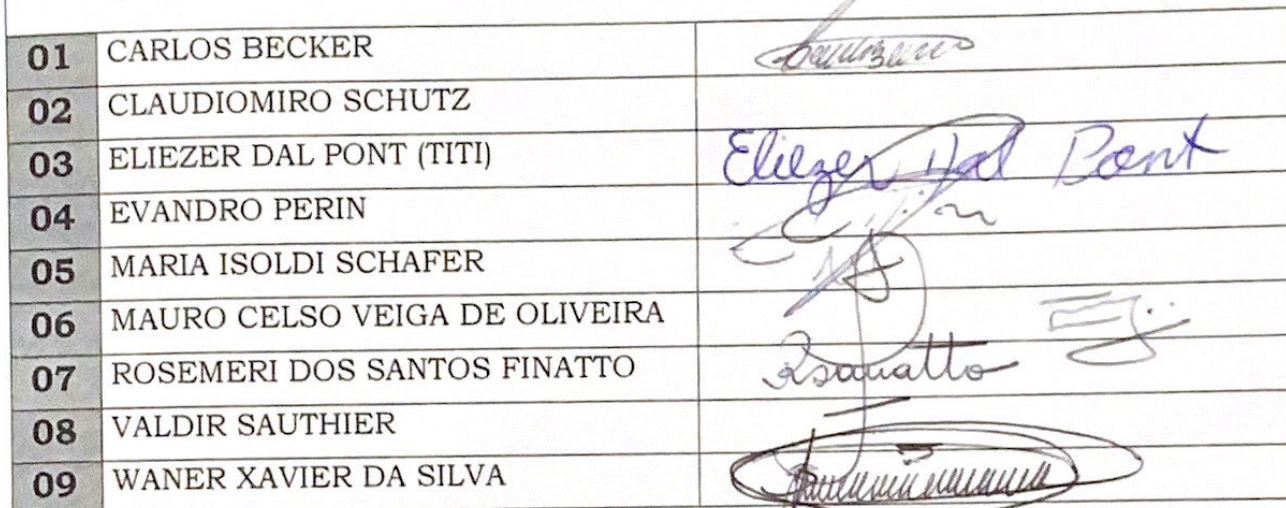 01 CARLOS BECKER
02 CLAUDIOMIRO SCHUTZ
03 ELIEZER DAL PONT (TITI) Eliezer Dal Pont
04 EVANDRO PERIN
05 MARIA ISOLDI SCHAFER
06 MAURO CELSO VEIGA DE OLIVEIRA
07 ROSEMERI DOS SANTOS FINATTO
08 VALDIR SAUTHIER
09 WANER XAVIER DA SILVA